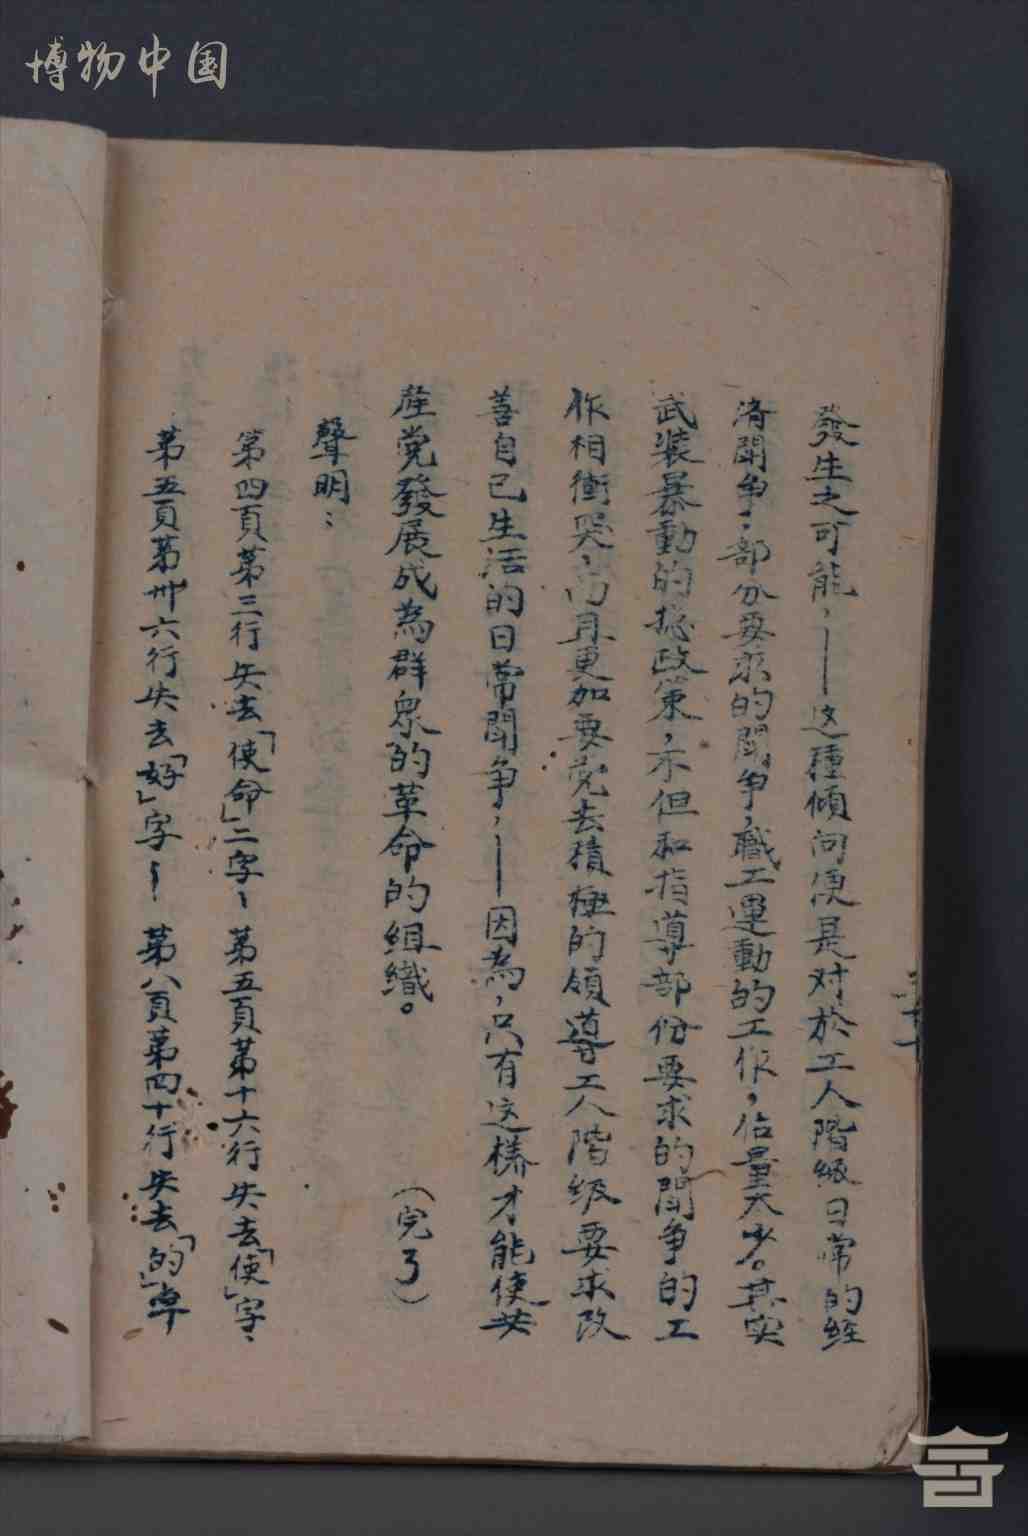 博物中国
發生之可能，——这種傾向便是对於工人階級日常的經
济鬪争，部分要求的鬪争，職工運動的工作，估量太少。其实
武装暴動的捴政策，不但和指導部份要求的鬪争的工
作相衝突，而且更加要党去積極的領導工人階级要求改
善自己生活的日常鬪争，——因為，只有这樣才能使共
産党發展成為群眾的革命的組織。
（完了）
聲明：
第四頁第三行失去「使命」二字、第五頁第十六行失去「使」字、
第五頁第卅六行失去「好」字、第八頁第四十行失去「的」字